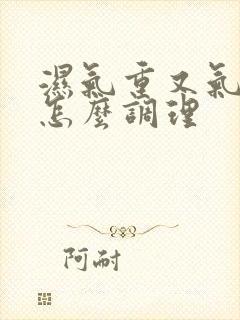 濕氣重又氣
怎麼調理
阿耐